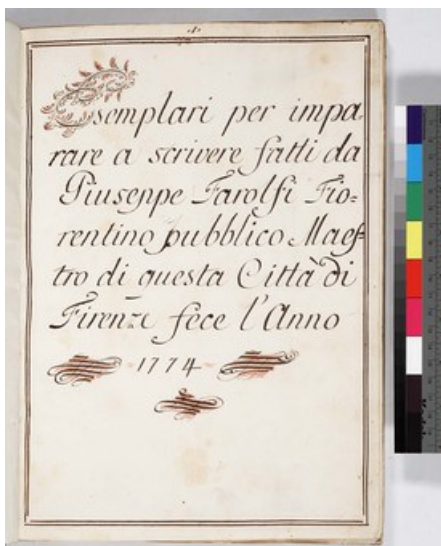 ·1·
Esemplari per impa.
rare a scrivere fatti da
Giuseppe Farolfi Fio=
rentino pubblico Maes=
tro di questa Città di
Firenze fece l'Anno
-1774-